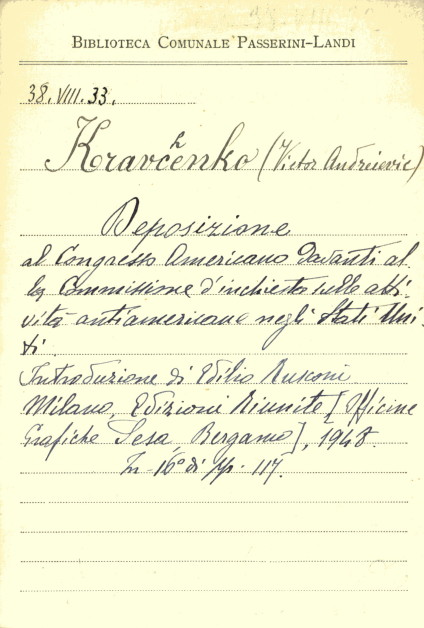 BIBLIOTECA COMUNALE PASSERINI-LANDI
38.VIII.33.
Kravchenko (Victor Andrìievic)
Deposizione
al Congresso Americano davanti al
la Commissione d'inchiesta sulle atti-
vità antiamericane negli Stati Uni-
ti.
Introduzione di Edilio Rusconi
Milano, Edizioni Riunite [Officine
Grafiche Sesa, Bergamo], 1948.
In-16° di pp. 117.